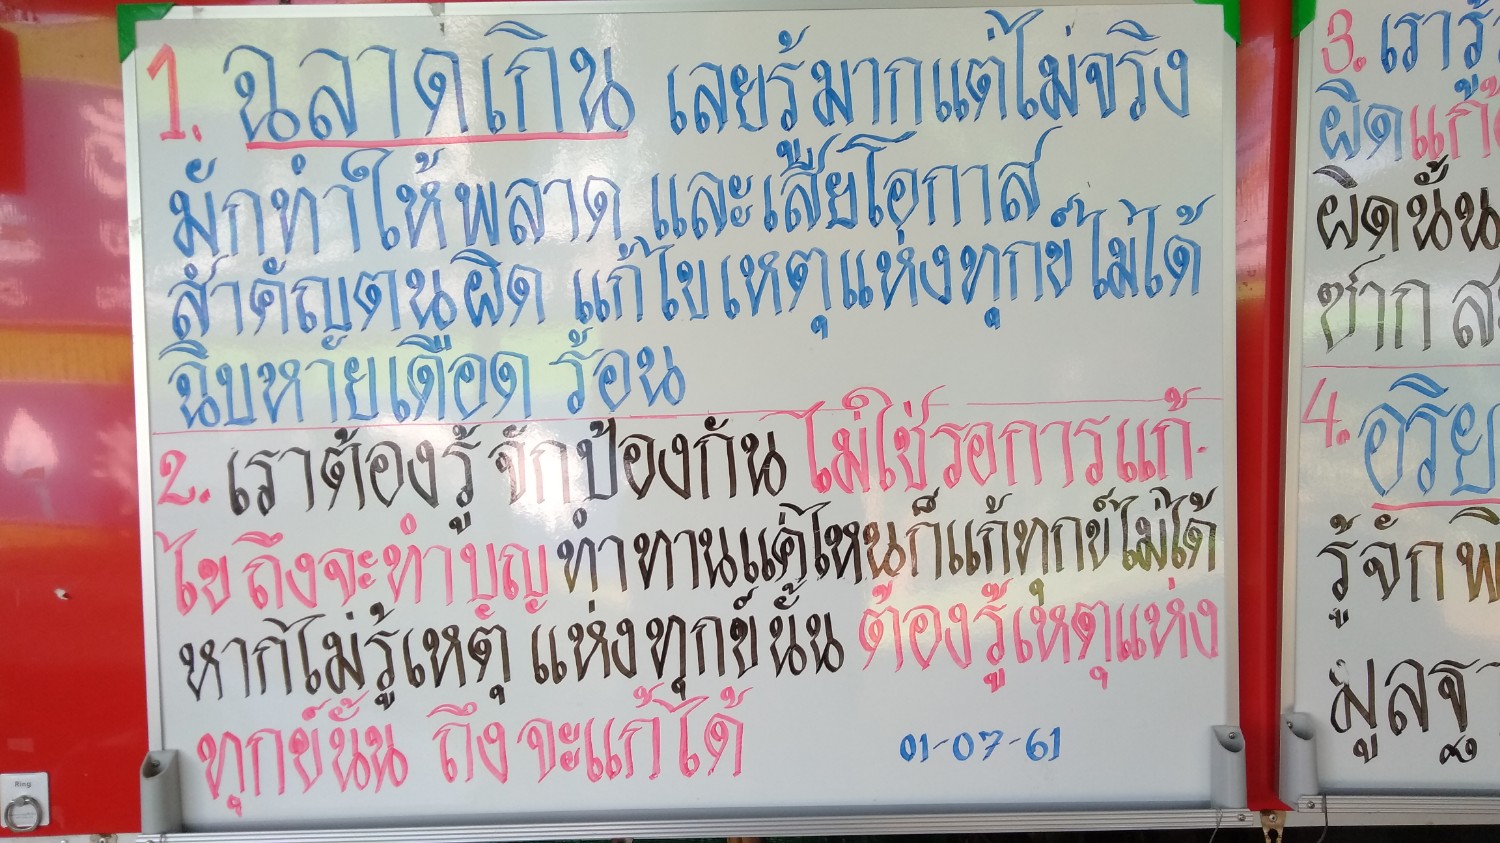 1. ฉลาดเกิน เลยรู้มากแต่ไม่จริง
มักทำให้พลาด และเสียโอกาส
สำคัญตนผิด แก้ไขเหตุแห่งทุกข์ไม่ได้
ฉิบหายเดือด ร้อน
2. เราต้องรู้ จักป้องกัน ไม่ใช่รอการแก้-
ไข ถึงจะทำบุญทำทานแค่ไหนก็แก้ทุกข์ไม่ได้
หากไม่รู้เหตุ แห่งทุกข์นั้น ต้องรู้เหตุแห่ง
ทุกข์นั้น ถึงจะแก้ได้
01-07-61
3. เรารู้
ผิดแก้
ผิดนั้น
ซาก
4. อริย
รู้จัก
มูลฐ
Ring